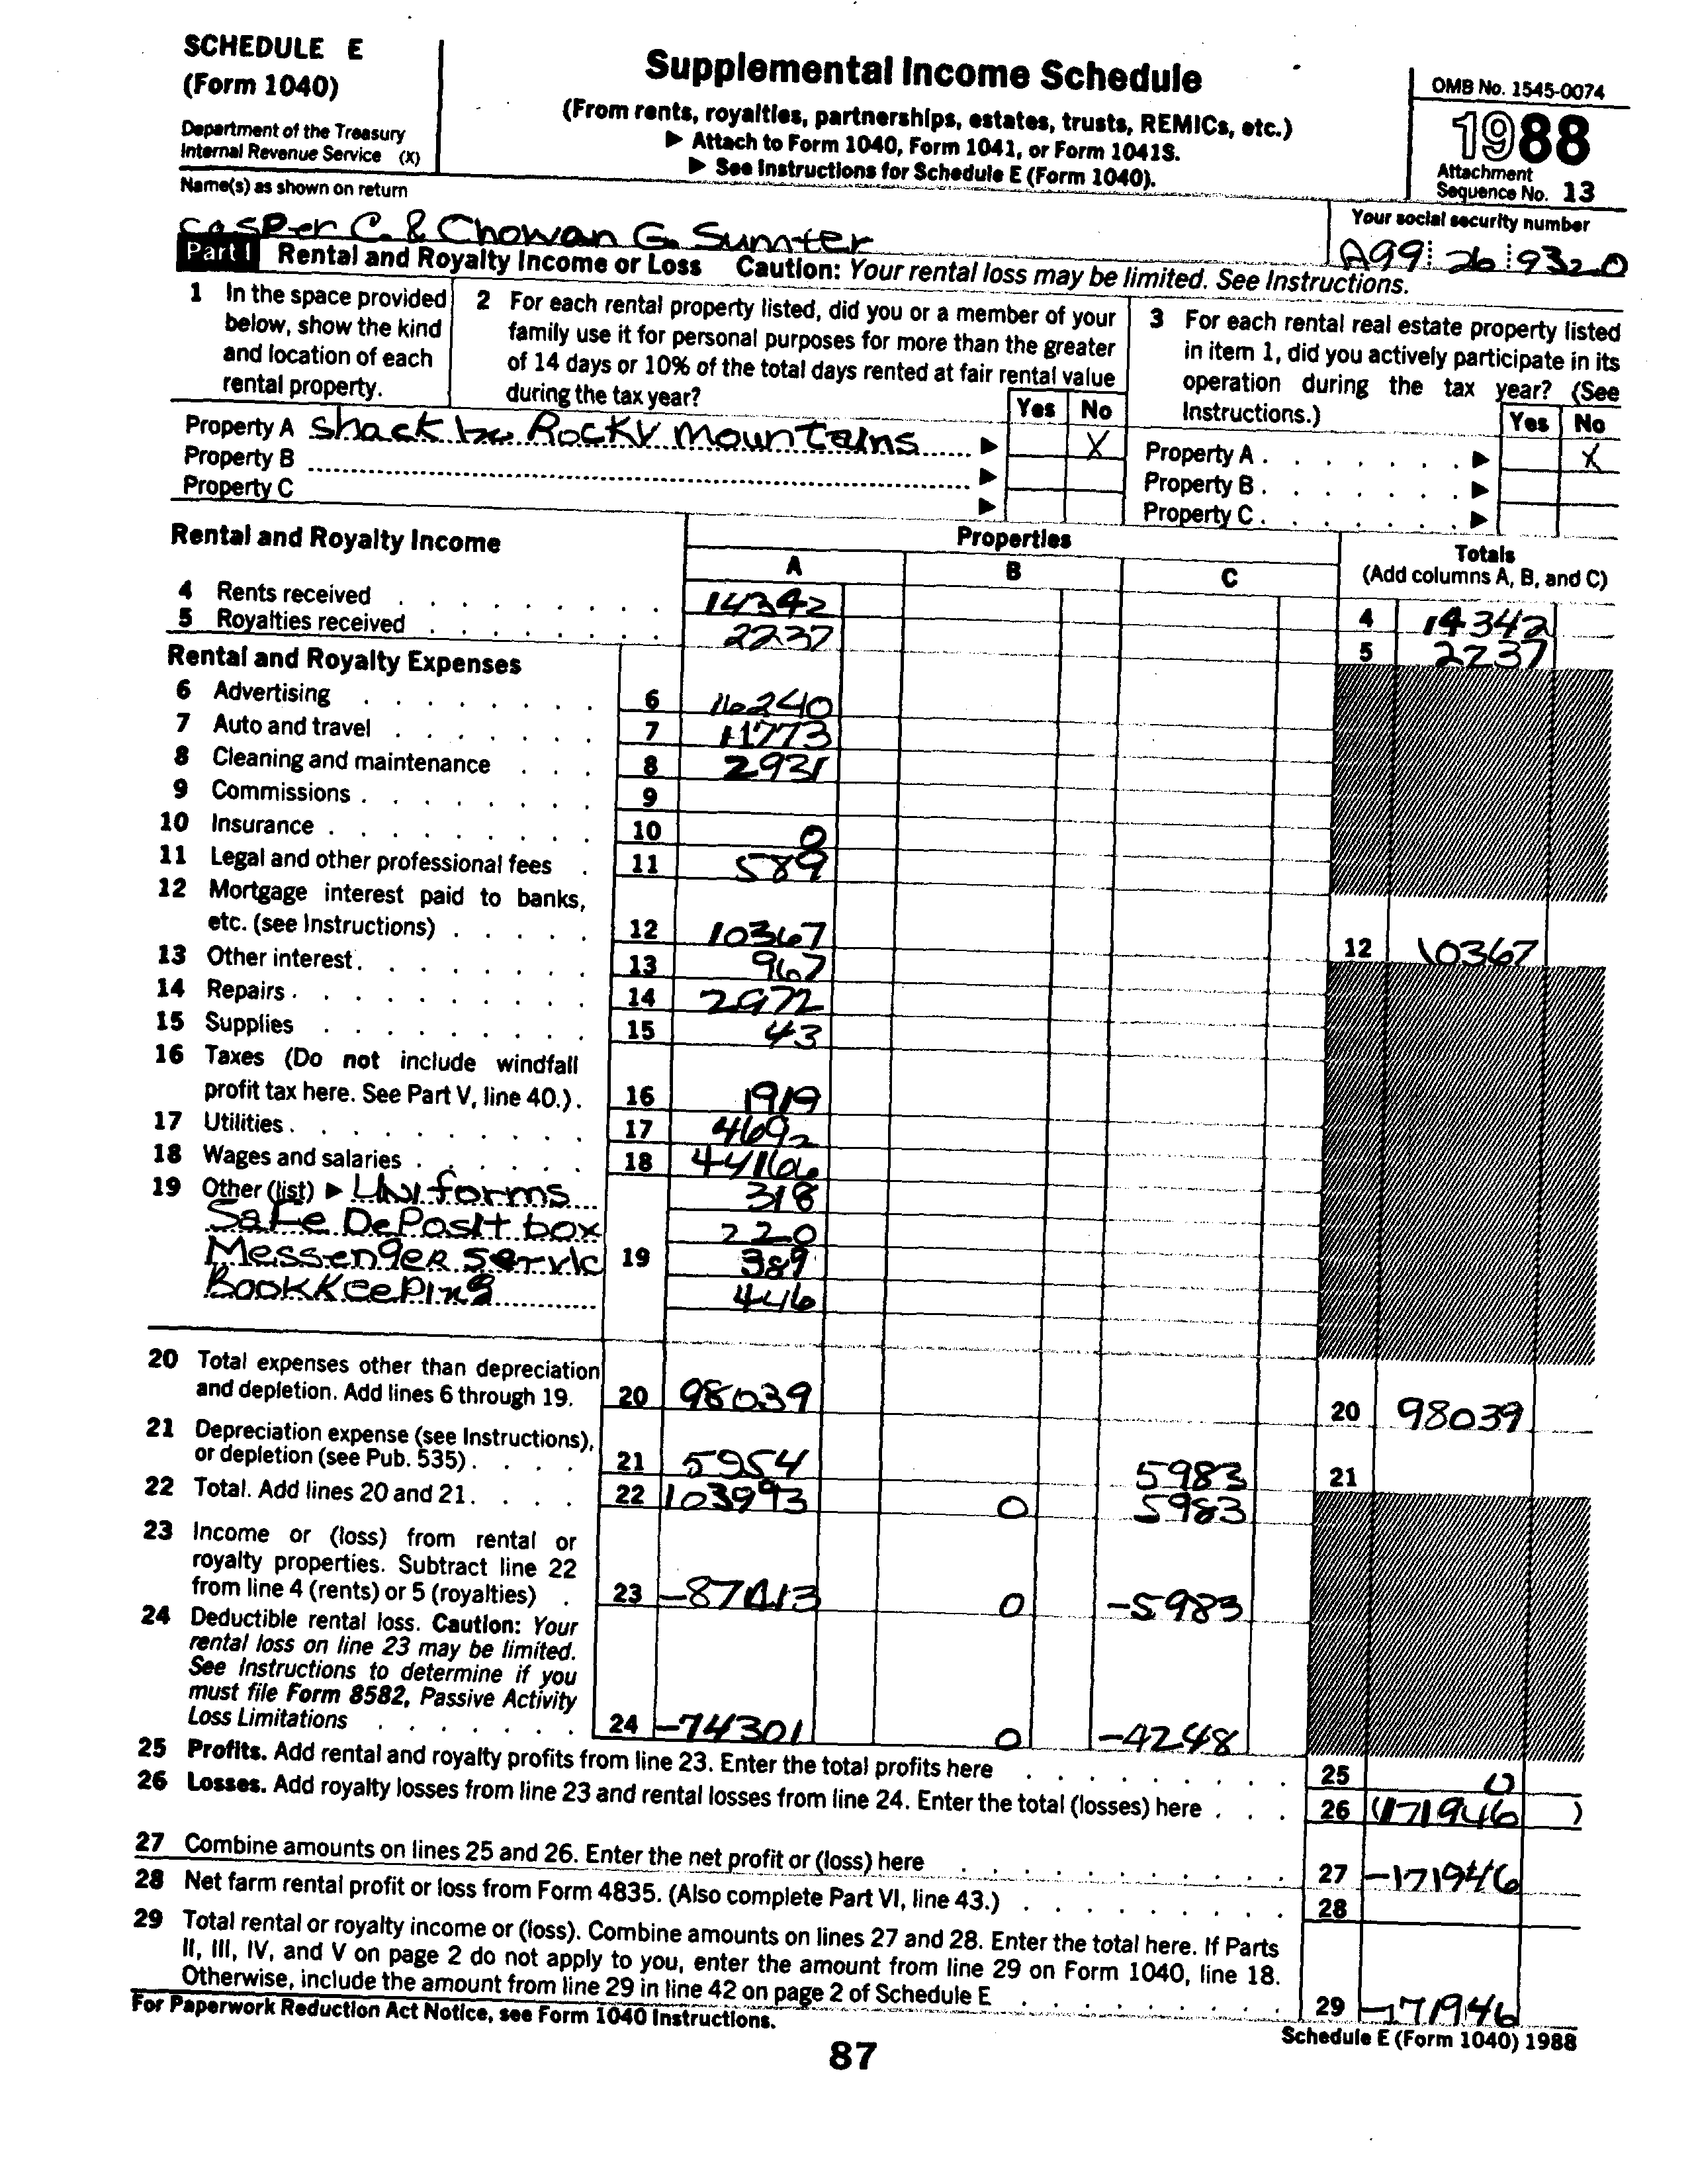 SCHEDULE E
(Form 1040)
Department of the Treasury
Internal Revenue Service (X)
Supplemental Income Schedule
(From rents, royalties, partnerships, estates, trusts, REMICs, etc.)
▶ Attach to Form 1040, Form 1041, or Form 1041S.
▶ See Instructions for Schedule E (Form 1040).
OMB No. 1545-0074
1988
Attachment
Sequence No. 13
Name(s) as shown on return
Casper C. & Chowan G. Sumter
Your social security number
A99 26 9320
Part I Rental and Royalty Income or Loss Caution: Your rental loss may be limited. See Instructions.
1 In the space provided
below, show the kind
and location of each
rental property.
2 For each rental property listed, did you or a member of your
family use it for personal purposes for more than the greater
of 14 days or 10% of the total days rented at fair rental value
during the tax year?
Yes No
3 For each rental real estate property listed
in item 1, did you actively participate in its
operation during the tax year? (See
Instructions.)
Yes No
Property A Shack Rocky Mountains ▶ X
Property B ▶
Property C ▶
Property A ▶ X
Property B ▶
Property C ▶
Rental and Royalty Income
Properties
A B C
Totals
(Add columns A, B, and C)
4 Rents received 14342 4 14342
5 Royalties received 2237 5 2237
Rental and Royalty Expenses
6 Advertising 6 16240
7 Auto and travel 7 11773
8 Cleaning and maintenance 8 2931
9 Commissions 9
10 Insurance 10 0
11 Legal and other professional fees 11 589
12 Mortgage interest paid to banks,
etc. (see Instructions) 12 10367 12 10367
13 Other interest 13 967
14 Repairs 14 2972
15 Supplies 15 43
16 Taxes (Do not include windfall
profit tax here. See Part V, line 40.) 16 1919
17 Utilities 17 4692
18 Wages and salaries 18 44166
19 Other (list) ▶ Uniforms 318
Safe Deposit box 220
Messenger Servic 19 389
Bookkeeping 446
20 Total expenses other than depreciation
and depletion. Add lines 6 through 19. 20 98039 20 98039
21 Depreciation expense (see Instructions),
or depletion (see Pub. 535) 21 5954 5983 21
22 Total. Add lines 20 and 21 22 103993 0 5983
23 Income or (loss) from rental or
royalty properties. Subtract line 22
from line 4 (rents) or 5 (royalties) 23 -87413 0 -5983
24 Deductible rental loss. Caution: Your
rental loss on line 23 may be limited.
See Instructions to determine if you
must file Form 8582, Passive Activity
Loss Limitations 24 -74301 0 -4248
25 Profits. Add rental and royalty profits from line 23. Enter the total profits here 25 0
26 Losses. Add royalty losses from line 23 and rental losses from line 24. Enter the total (losses) here 26 (171946)
27 Combine amounts on lines 25 and 26. Enter the net profit or (loss) here 27 -171946
28 Net farm rental profit or loss from Form 4835. (Also complete Part VI, line 43.) 28
29 Total rental or royalty income or (loss). Combine amounts on lines 27 and 28. Enter the total here. If Parts
II, III, IV, and V on page 2 do not apply to you, enter the amount from line 29 on Form 1040, line 18.
Otherwise, include the amount from line 29 in line 42 on page 2 of Schedule E 29 -171946
For Paperwork Reduction Act Notice, see Form 1040 Instructions.
Schedule E (Form 1040) 1988
87